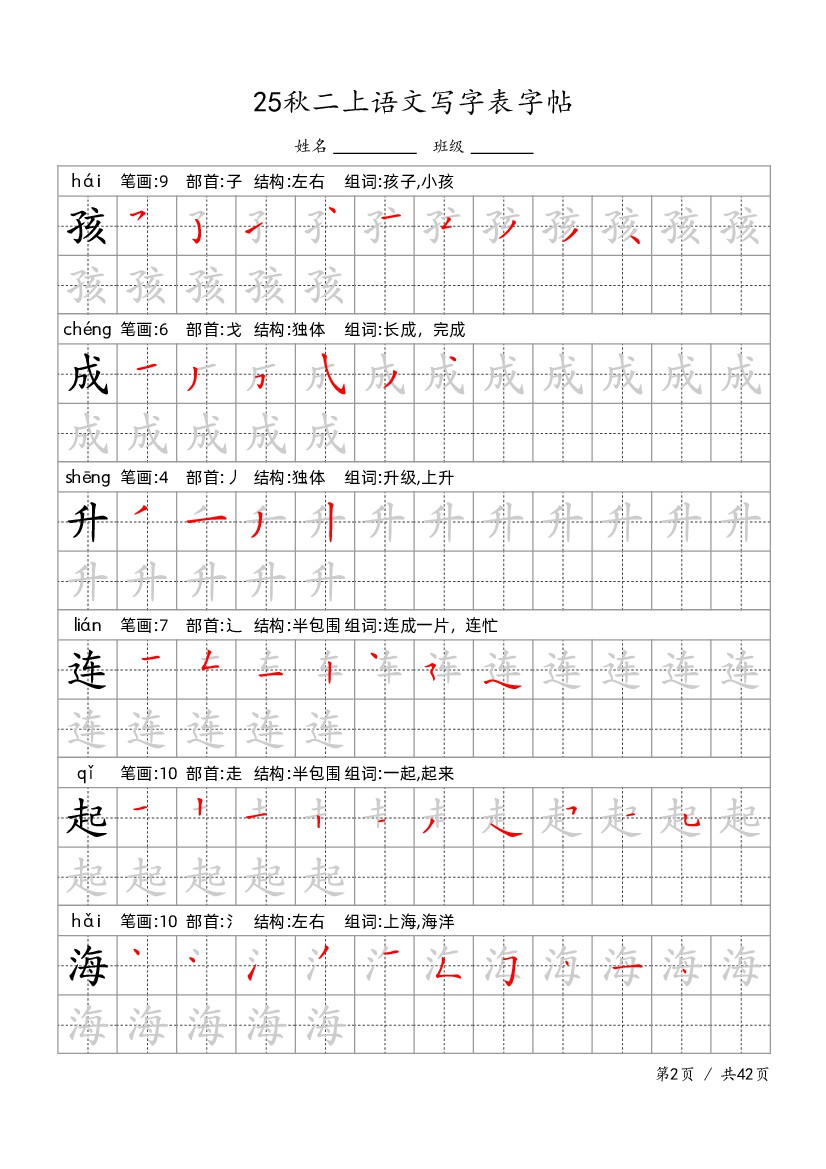 25秋二上语文写字表字帖
姓名 班级
hái 笔画:9 部首:子 结构:左右 组词:孩子,小孩
孩 孩 孩
孩 孩 孩 孩 孩
chéng 笔画:6 部首:戈 结构:独体 组词:长成，完成
成 成 成 成 成 成 成
成 成 成 成 成
shēng 笔画:4 部首:丿 结构:独体 组词:升级,上升
升 升 升 升 升 升 升 升 升
升 升 升 升 升
lián 笔画:7 部首:辶 结构:半包围 组词:连成一片，连忙
连 连 连 连 连 连
连 连 连 连 连
qǐ 笔画:10 部首:走 结构:半包围 组词:一起,起来
起 起 起
起 起 起 起 起
hǎi 笔画:10 部首:氵 结构:左右 组词:上海,海洋
海 海 海
海 海 海 海 海
第2页 / 共42页